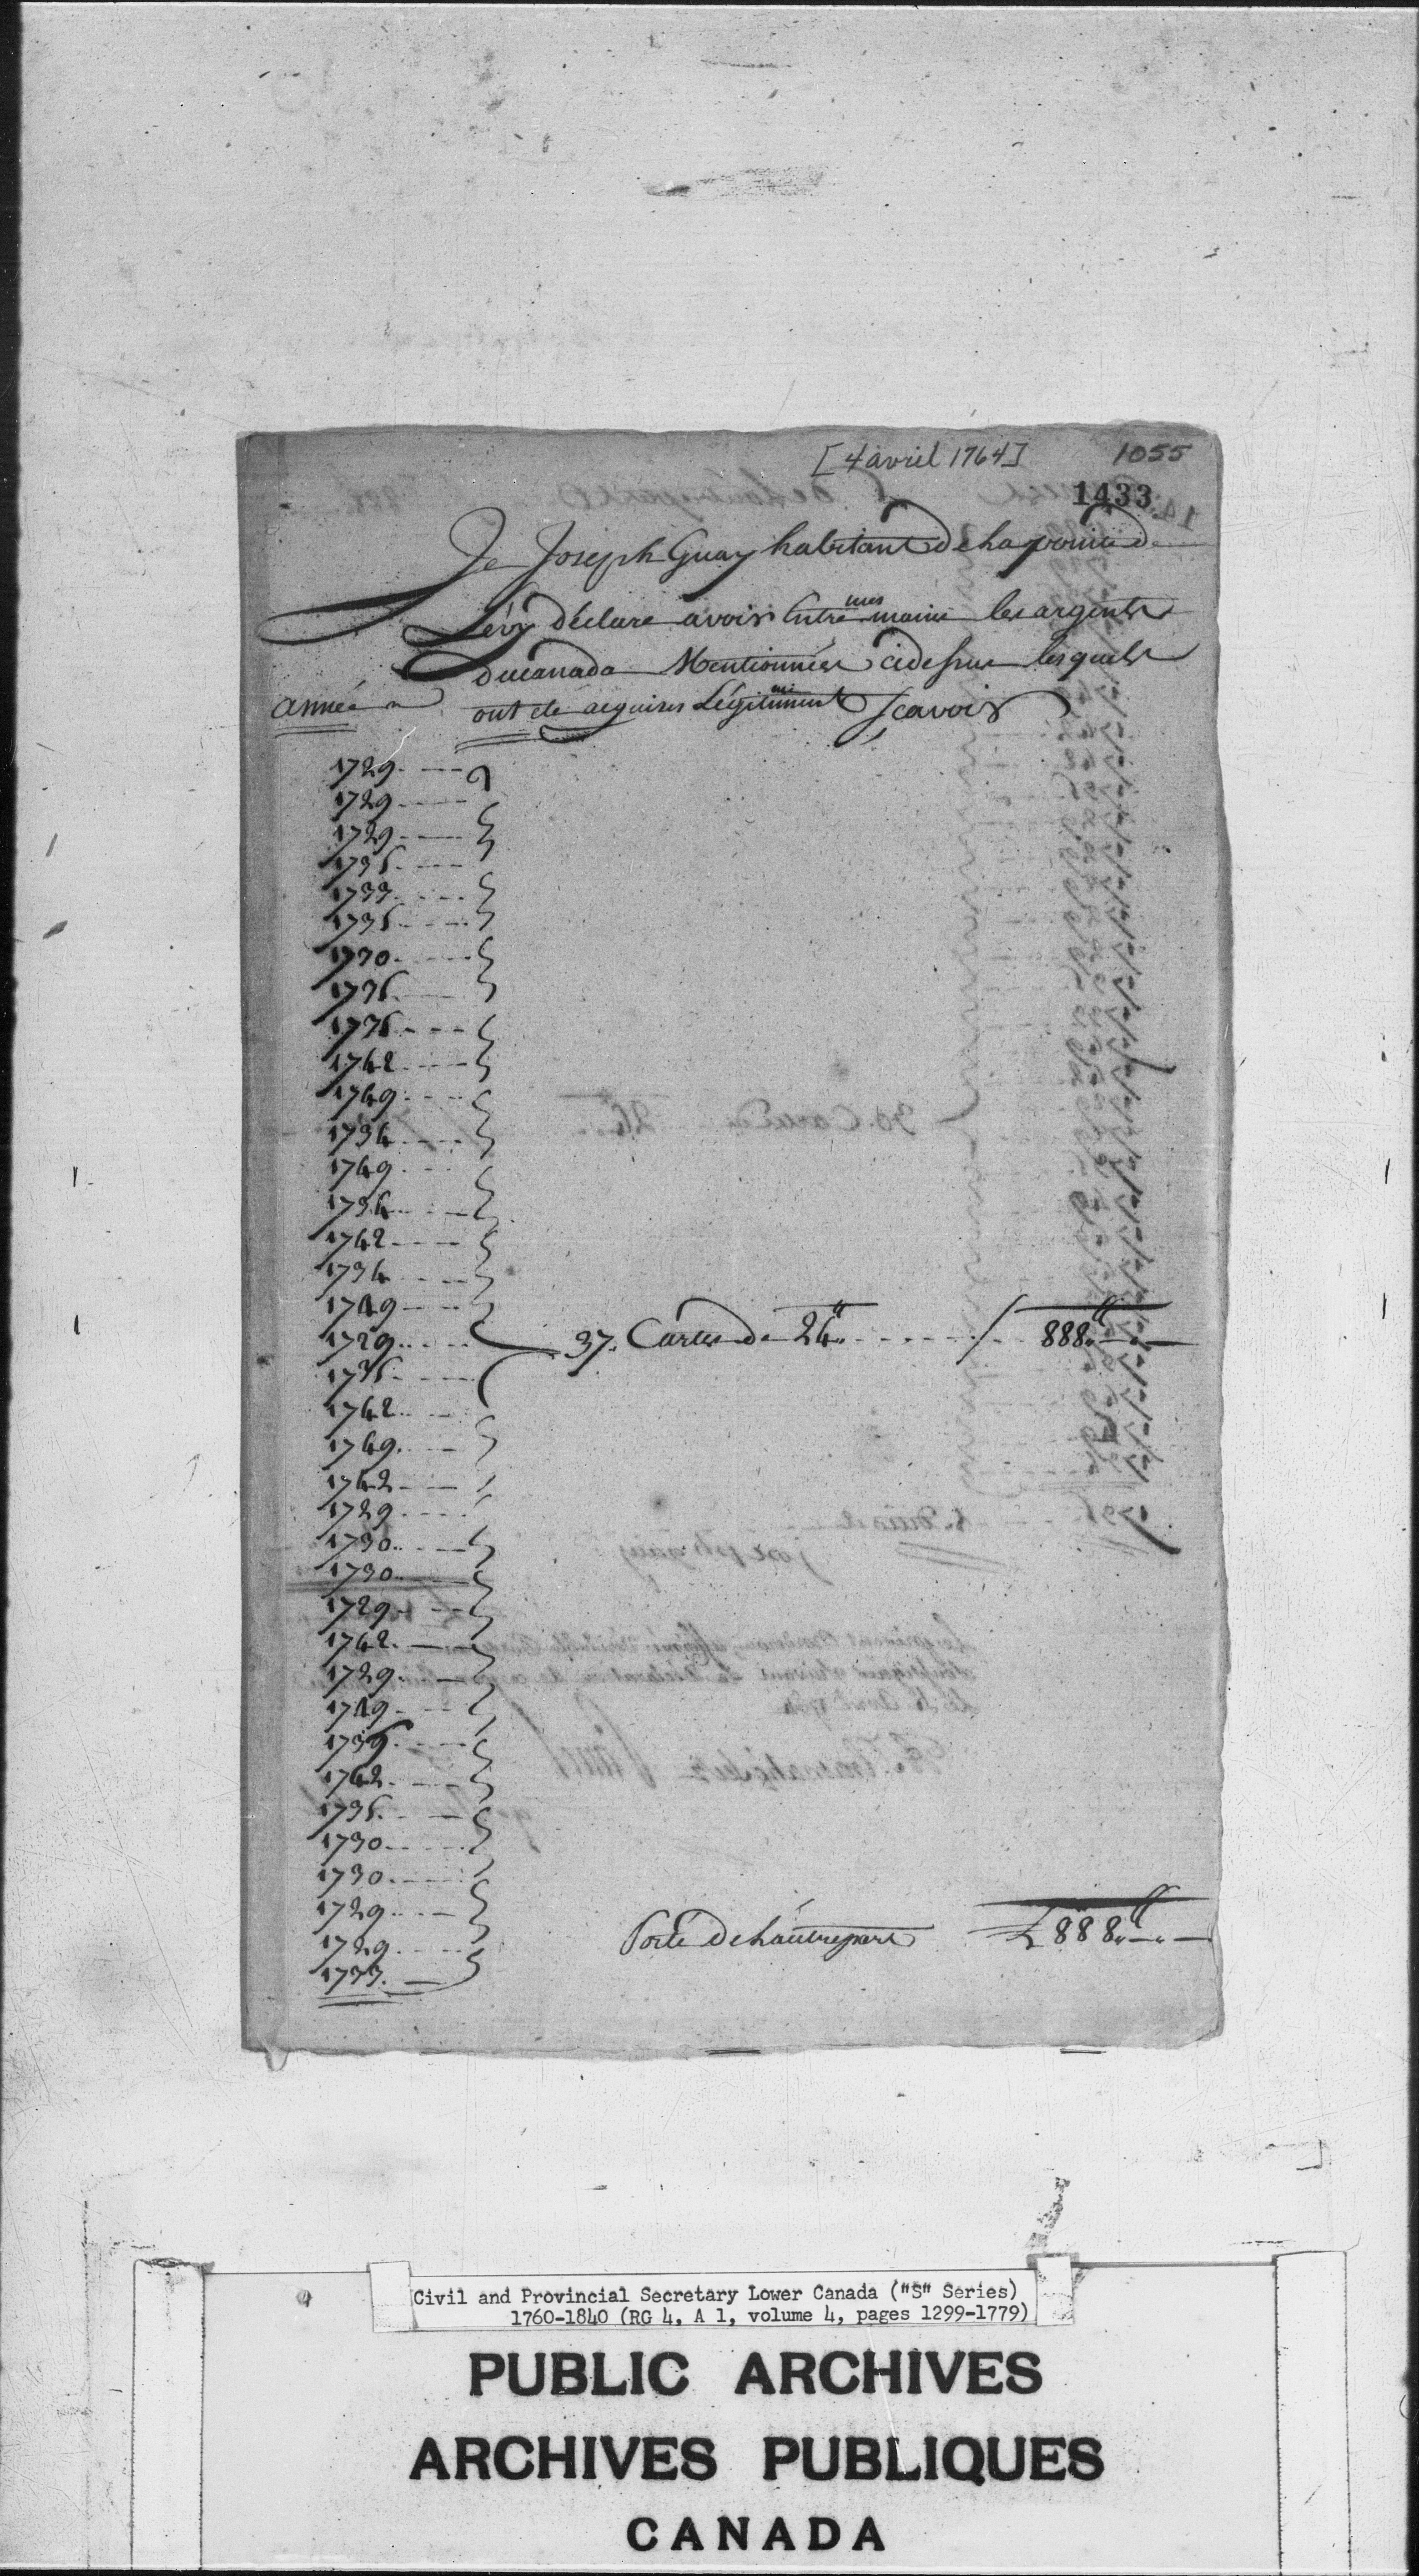 [4 avril 1764] 1055
1433
Je Joseph Guay habitant De La pointe de
Lévy déclare avoir Entre mes mains les argents
du canada Mentionnées cidessus lesquels
année ont été acquises Légitimement Scavoir
1729
1729
1729
1735
1733
1735
1730
1735
1735
1742
1749
1734
1749
1734
1742
1734
1749
1729 37. Cartes de 24ll 888ll
1735
1742
1749
1742
1729
1730
1730
1729
1742
1729
1749
1735
1742
1735
1730
1730
1729
1729 Porté De Lautre part £ 888ll
1733
Civil and Provincial Secretary Lower Canada ("S" Series)
1760-1840 (RG 4, A 1, volume 4, pages 1299-1779)
PUBLIC ARCHIVES
ARCHIVES PUBLIQUES
CANADA